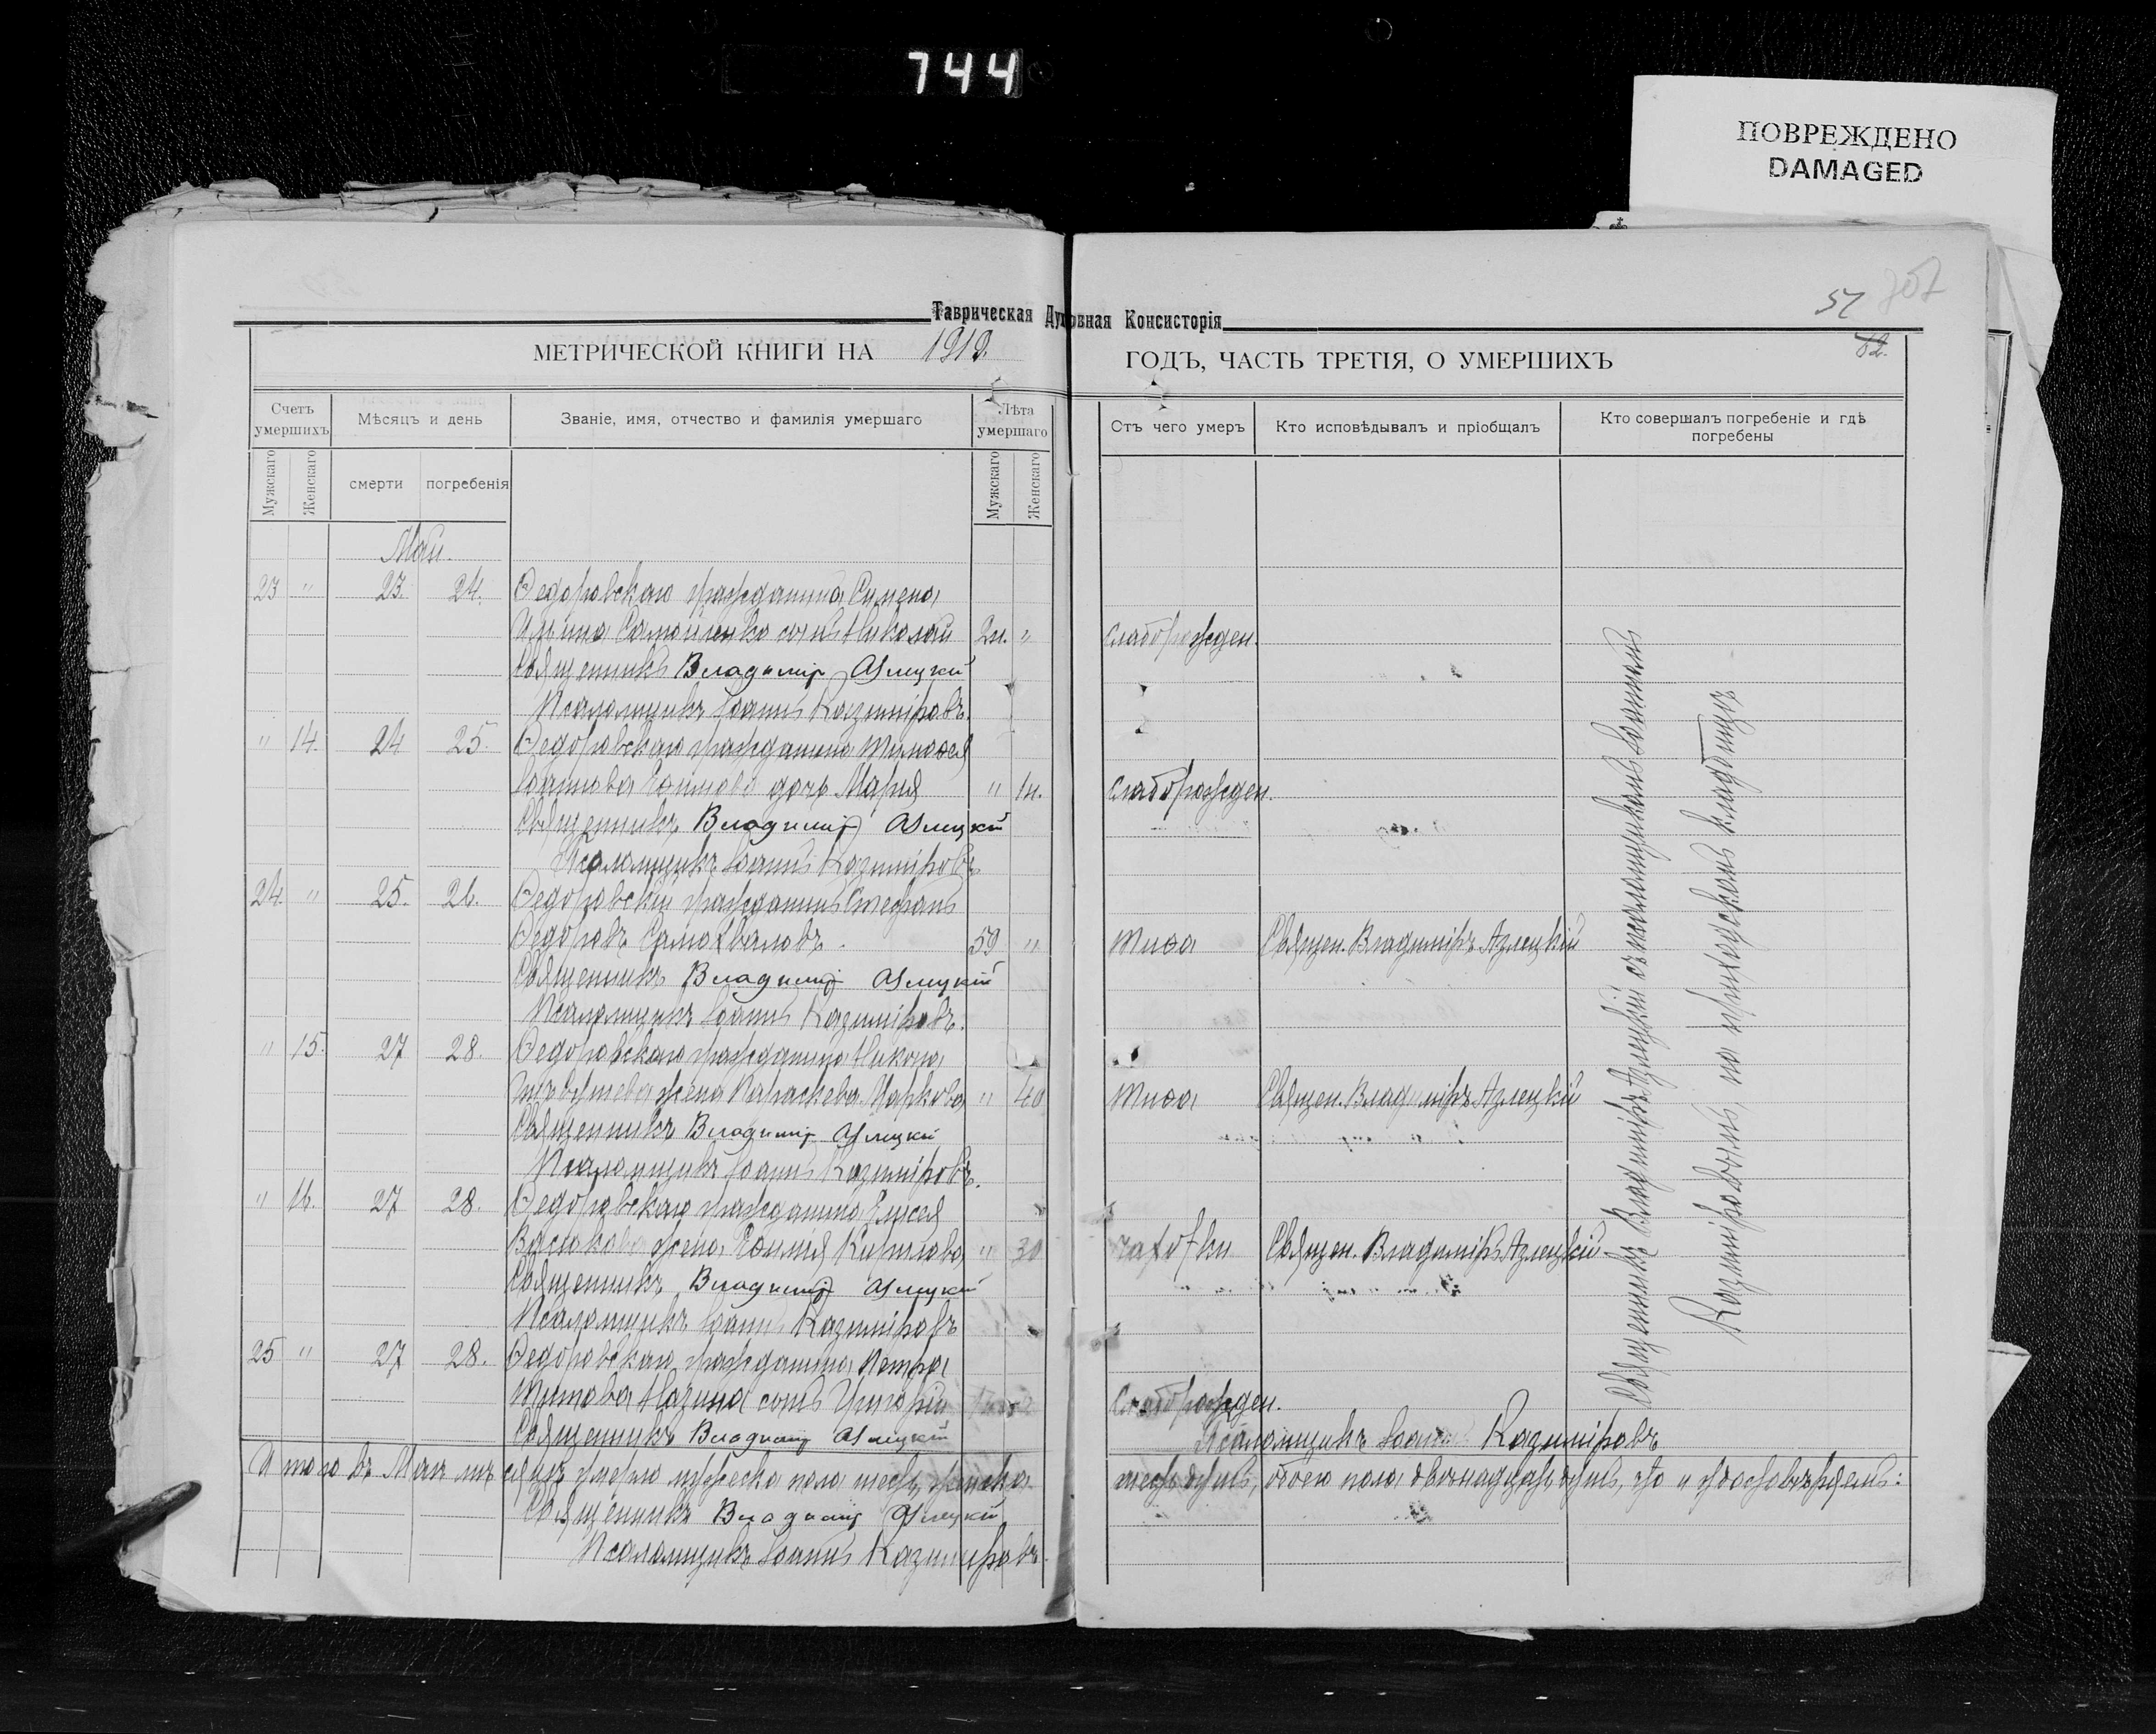 744
ПОВРЕЖДЕНО
DAMAGED
Таврическая Духовная Консисторія
57
МЕТРИЧЕСКОЙ КНИГИ НА 1919 ГОДЪ, ЧАСТЬ ТРЕТІЯ, О УМЕРШИХЪ
62.
Счетъ умершихъ
Мѣсяцъ и день
Званіе, имя, отчество и фамилія умершаго
Лѣта умершаго
Отъ чего умеръ
Кто исповѣдывалъ и пріобщалъ
Кто совершалъ погребеніе и гдѣ погребены
Мужскаго
Женскаго
смерти
погребенія
Мужскаго
Женскаго
Май.
23 " 23. 24. Ѳедоровскаго гражданина Симеона
сынъ Николай 2н. " слаборожден.
Священникъ Владиміръ Азлецкій
Псаломщикъ Іоаннъ Казиміровъ.
" 14. 24 25. Ѳедоровскаго гражданина Тимоѳея
Іоаннова дочь Марія " 1н. слаборожден.
Священникъ Владиміръ Азлецкій
Псаломщикъ Іоаннъ Казиміровъ
24. " 25. 26. Ѳедоровскій гражданинъ Стефанъ
Ѳедоровъ Самохваловъ. 59 " тифа Священ. Владиміръ Азлецкій
Священникъ Владиміръ Азлецкій
Псаломщикъ Іоаннъ Казиміровъ.
" 15. 27 28. Ѳедоровскаго гражданина Никона
жена Параскева Маркова " 40 тифа Священ. Владиміръ Азлецкій
Священникъ Владиміръ Азлецкій
Псаломщикъ Іоаннъ Казиміровъ.
" 16. 27 28. Ѳедоровскаго гражданина Елисея
жена Евѳимія Кирилова " 30 чахотки Священ. Владиміръ Азлецкій
Священникъ Владиміръ Азлецкій
Псаломщикъ Іоаннъ Казиміровъ
25 " 27 28. Ѳедоровскаго гражданина Петра
Титова сынъ Григорій слаборожден.
Священникъ Владиміръ Азлецкій Псаломщикъ Іоаннъ Казиміровъ
Итого въ Маѣ мѣсяцѣ умерло мужеска пола шесть, женска шесть душъ, обоего пола двѣнадцать душъ, что и удостовѣряемъ:
Священникъ Владиміръ Азлецкій
Псаломщикъ Іоаннъ Казиміровъ.
Священникъ Владиміръ Азлецкій съ псаломщикомъ Іоанномъ
Казиміровымъ, на приходскомъ кладбищѣ